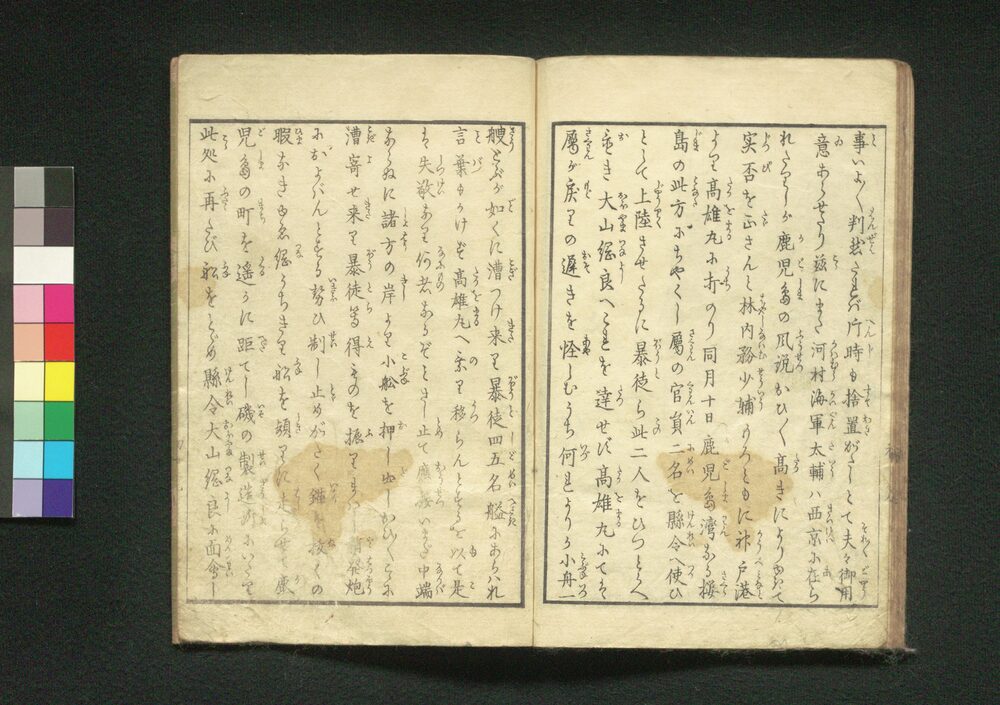 事いよ〳〵判然たれバ片時も捨置がたしとて夫々御用
意あらせたり茲にまた河村海軍大輔ハ西京に在ら
れたりしが鹿児島の風説かひ〴〵高きによりかたて
実否を正さんと林内務少輔のろともに神戸港
より高雄丸に打のり同月十日鹿児島湾なる桜
島の此方にちやくし属の官員二名を縣令へ使ひ
として上陸させたるに暴徒ら此二人をひつとらへ
置き大山綱良へこれを達せず高雄丸にてハ
属が戻りの遅きを怪しむうち何れよりか小舟一
艘とぶが如くに漕つけ来り暴徒四五名艦にあらハれ
言葉もかけず高雄丸へ乗り移らんとするを以て是
ハ失敬なり何者なるぞとさし止て應接いまだ中端
ならぬに諸方の岸より小舩を押し出しかひ〴〵こゝに
漕寄せ来り暴徒等得ものを振り発炮
におよばんとする勢ひ制し止めがたく錨を抜くの
暇なきゆゑ綱うちきり舩を頻りに走らせて鹿
児島の町を遥かに距てし磯の製造所にいたり
此処に再たび舩をとゞめ縣令大山綱良に面會し